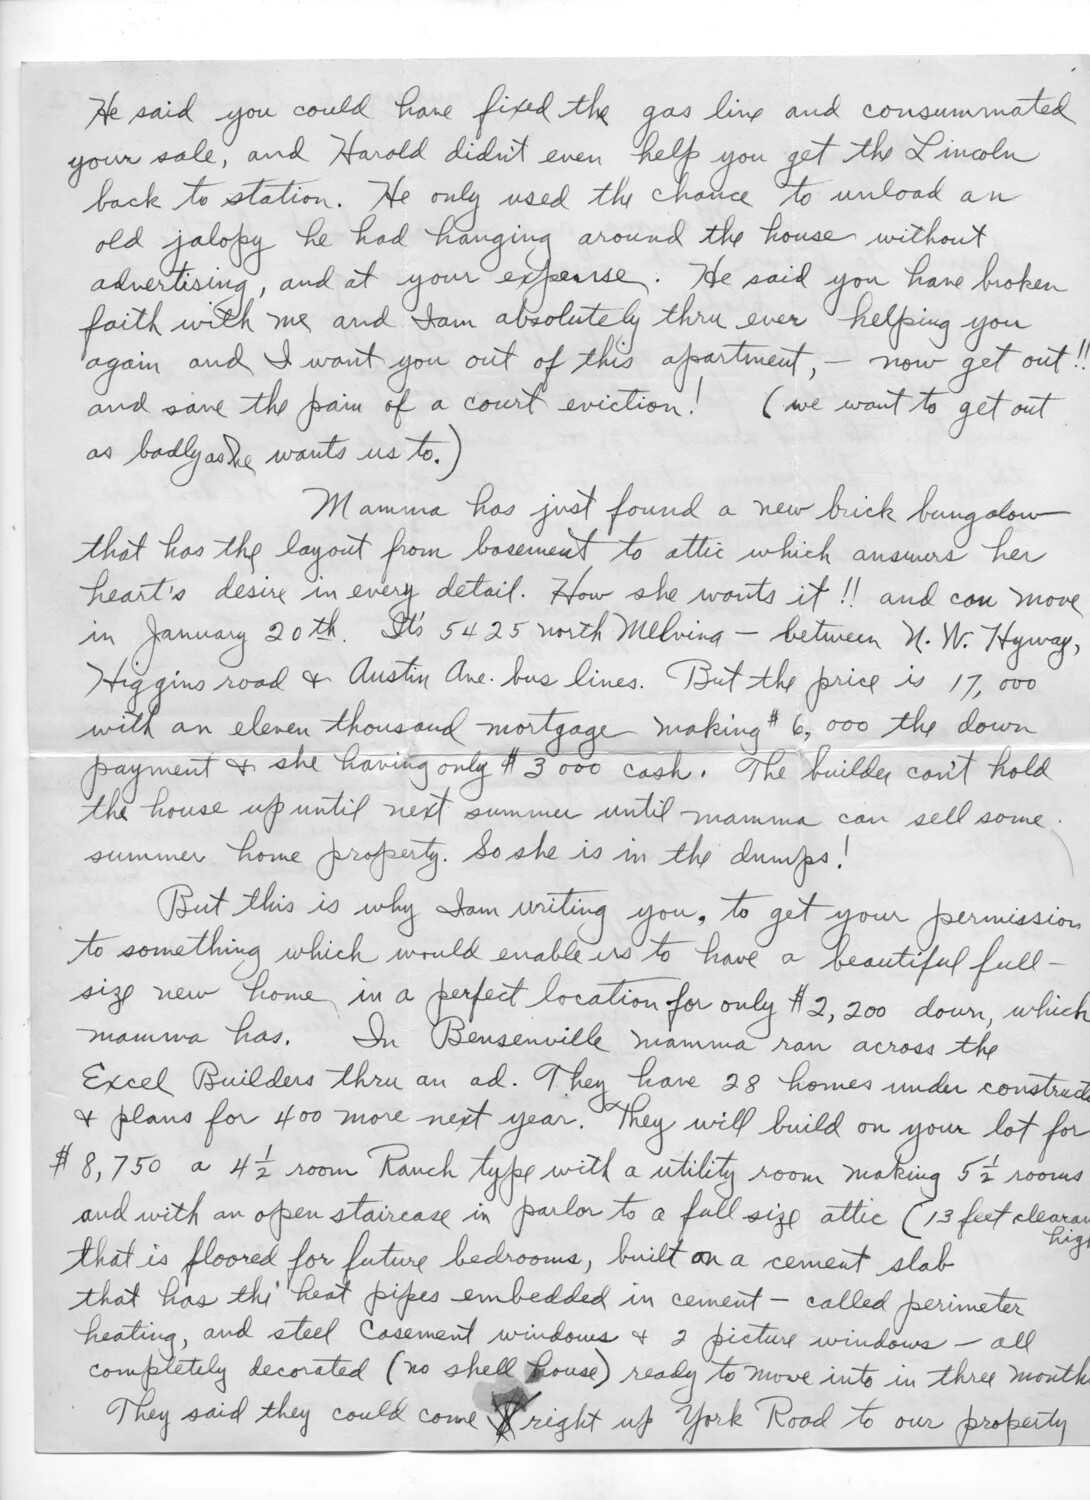 He said you could have fixed the gas line and consummated
your sale, and Harold didn't even help you get the Lincoln
back to station. He only used the chance to unload an
old jalopy he had hanging around the house without
advertising, and at your expense. He said you have broken
faith with me and I am absolutely thru ever helping you
again and I want you out of this apartment, — now get out!!
and save the pain of a court eviction! (we want to get out
as badly as he wants us to.)
Mamma has just found a new brick bungalow
that has the layout from basement to attic which answers her
heart's desire in every detail. How she wants it!! and can move
in January 20th. It's 5425 north Melvina — between N.W. Hyway,
Higgins road & Austin Ave. bus lines. But the price is 17,000
with an eleven thousand mortgage making $6,000 the down
payment & she having only $3000 cash. The builder can't hold
the house up until next summer until mamma can sell some
summer home property. So she is in the dumps!
But this is why I am writing you, to get your permission
to something which would enable us to have a beautiful full-
size new home in a perfect location for only $2,200 down, which
mamma has. In Bensenville mamma ran across the
Excel Builders thru an ad. They have 28 homes under constructi
& plans for 400 more next year. They will build on your lot for
$8,750 a 4½ room Ranch type with a utility room making 5½ rooms
and with an open staircase in parlor to a full size attic (13 feet clearan
high
that is floored for future bedrooms, built on a cement slab
that has the heat pipes embedded in cement — called perimeter
heating, and steel casement windows & 2 picture windows — all
completely decorated (no shell house) ready to move into in three months
They said they could come right up York Road to our property